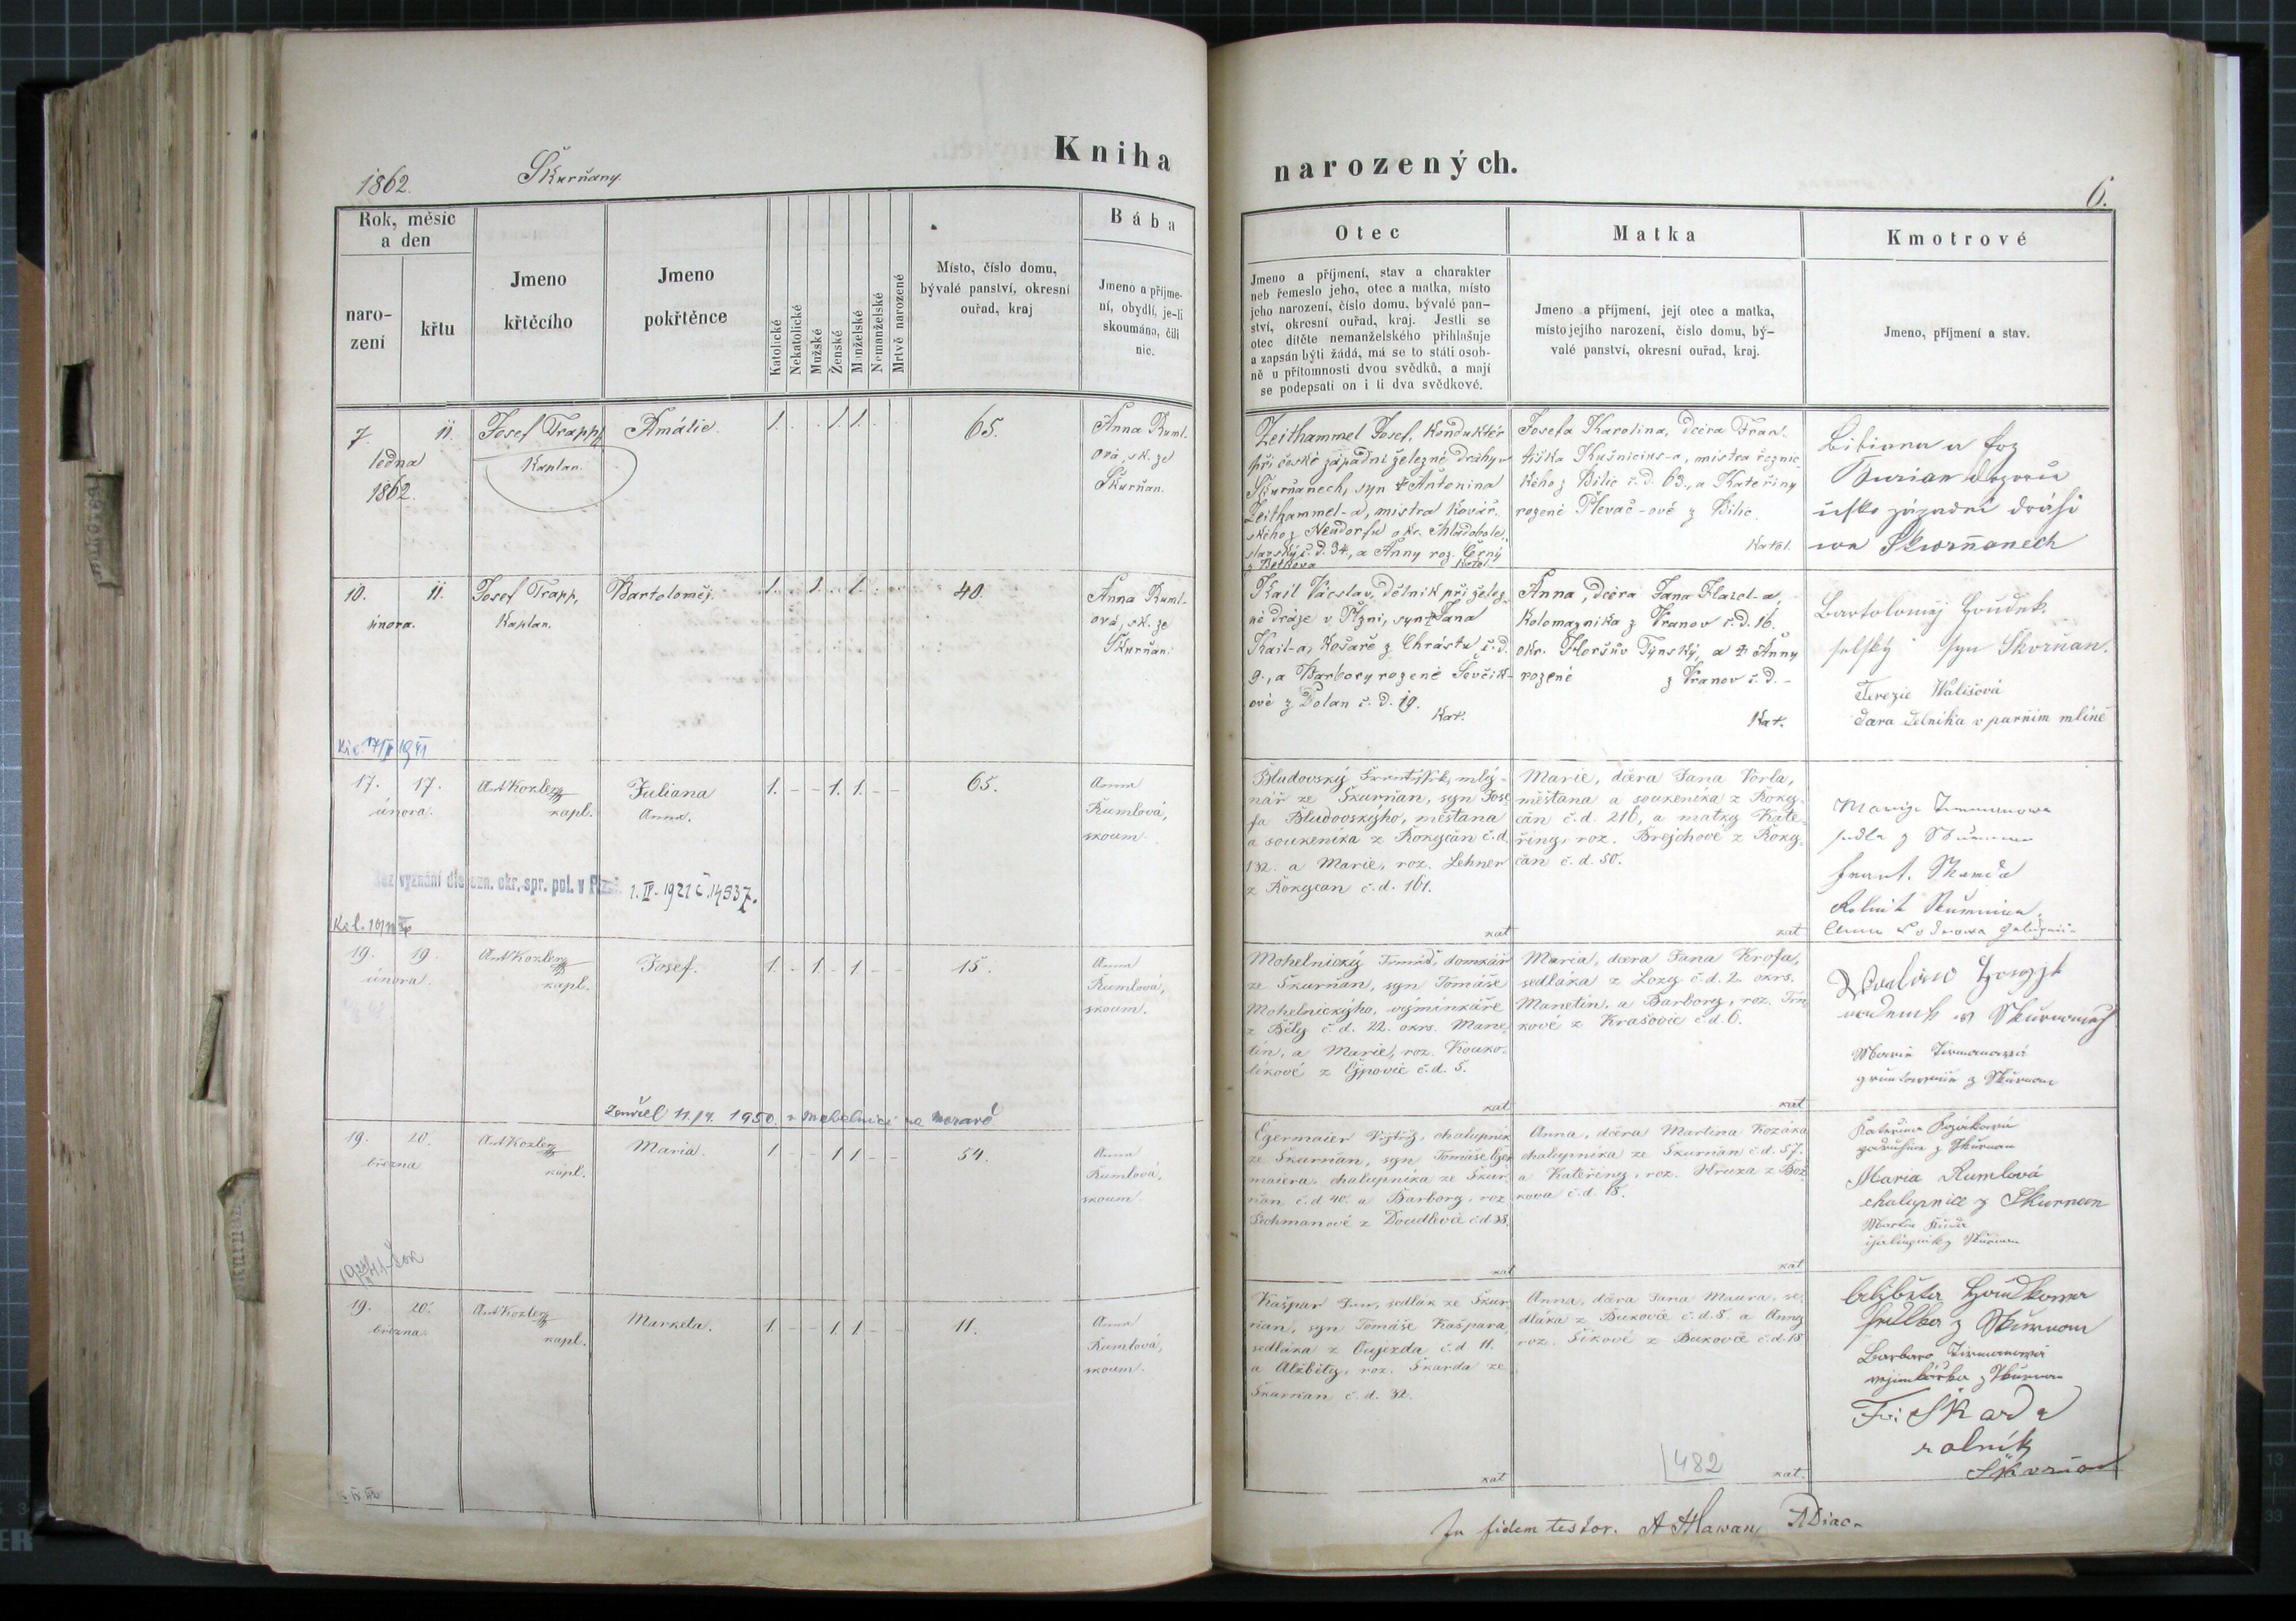 1862.
Škurňany.
Kniha
narozených.
6.
Rok, měsíc
a den
naro-
zení
křtu
Jmeno
křtěcího
Jmeno
pokřtěnce
Katolické
Nekatolické
Mužské
Ženské
Manželské
Nemanželské
Mrtvě narozené
Místo, číslo domu,
bývalé panství, okresní
ouřad, kraj
Bába
Jmeno a příjme-
ní, obydlí, je-li
skoumána, čili
nic.
Otec
Jmeno a příjmení, stav a charakter
neb řemeslo jeho, otec a matka, místo
jeho narození, číslo domu, bývalé pan-
ství, okresní ouřad, kraj. Jestli se
otec dítěte nemanželského přihlašuje
a zapsán býti žádá, má se to státi osob-
ně u přítomnosti dvou svědků, a mají
se podepsati on i ti dva svědkové.
Matka
Jmeno a příjmení, její otec a matka,
místo jejího narození, číslo domu, bý-
valé panství, okresní ouřad, kraj.
Kmotrové
Jmeno, příjmení a stav.
7. 11.
ledna
1862.
Josef Trapp,
Kaplan.
Amálie
1. 1. 1.
65.
Anna Ruml-
ová, sk. ze
Škurňan.
Zeithammel Josef, Konduktér
při české západní železné dráhy v
Škurňanech, syn † Antonína
Zeithammel-a, mistra kovář-
ského z Neudorfu okr. Mladobole-
slavský č.d. 34, a Anny roz. Černý
Katol.
Josefa Karolina, dcera Fran-
tiška Kušnicius-a, mistra řeznic-
kého z Bilic č.d. 63, a Kateřiny
rozené Plevač-ové z Bilic
Katol.
západní dráhi
Skwrňanech
10. 11.
února.
Josef Trapp,
Kaplan.
Bartoloměj.
1. 1. 1.
40.
Anna Ruml-
ová, sk. ze
Škurňan.
Kail Vácslav, dělník při želez-
né dráze v Plzni, syn † Jana
Kail-a, Košaře z Chrástu č.d.
9., a Barbory rozené Ševčik-
ové z Dolan č.d. 19.
Kat.
Anna, dcera Jana Hazel-a,
Kolomazníka z Vranov č.d. 16.
okr. Horšův Týnský, a † Anny
rozené z Vranov č.d. -
Kat.
Bartoloměj Houdek
selský syn Skvrňan.
Terezie Wališová
dcra dělníka v parním mlíně
17. 17.
února.
Ant Kozler
kapl.
Juliana
Anna.
1. - - 1. 1. - -
65.
Anna
Rumlová,
skoum.
Bez vyznání dle ozn. okr. spr. pol. v Plzni. 1. IV. 1921 č. 14537.
Bludovský František, mly-
nář ze Škurňan, syn Jose-
fa Bludovskýho, měštana
a soukeníka z Rokycan č.d.
132. a Marie, roz. Lehner
z Rokycan č.d. 161.
kat
Marie, dcera Jana Vorla,
měštana a soukeníka z Roky-
can č.d. 216, a matky Kate-
řiny, roz. Brejchové z Roky-
can č.d. 50.
kat
19. 19.
února.
Ant Kozler
kapl.
Josef.
1. - 1. - 1. - -
15.
Anna
Rumlová,
skoum.
Zemřel 11./4. 1950. v Mohelnici na Moravě
Mohelnický Tomáš, domkář
ze Škurňan, syn Tomáše
Mohelnickýho, výminkáře
z Bělý č.d. 22. okrs. Mane-
tín, a Marie, roz. Kouko-
likové z Ejpovic č.d. 5.
kat
Maria, dcera Jana Krofa,
sedláka z Lozy č.d. 2. okrs.
Manetín, a Barbory, roz. Trn-
kové z Krašovic č.d. 6.
kat
19. 20.
března
Ant Kozler
kapl.
Maria.
1 - - 1 1 - -
54.
Anna
Rumlová,
skoum.
Egermaier Vojtěch, chalupník
ze Škurňan, syn Tomáše Eger-
maiera, chalupníka ze Škur-
ňan č.d 40. a Barbory, roz.
z Doudlevic č.d 38.
kat
Anna, dcera Martina Kozáka
chalupníka ze Škurňan č.d. 57.
a Kateřiny, roz. Hruza z Bož-
kova č.d. 18.
kat
Kateřina Kozáková
Maria Rumlová
chalupnice z Skurnan
19. 20.
března.
Ant Kozler
kapl.
Marketa.
1. - - 1. 1 - -
11.
Anna
Rumlová,
skoum.
Kašpar Jan, sedlák ze Škur-
ňan, syn Tomáše Kašpara,
sedláka z Oujezda č.d 11.
a Alžběty, roz. Škarda ze
Škurňan č.d. 32.
kat
Anna, dcera Jana Maura, se-
dláka z Bukovic č.d. 8. a Anny
roz. Šikové z Bukovic č.d. 18
kat.
482
Alžběta Houdkowa
Fr: Škarda
rolník
Skvrňan
In fidem testor.